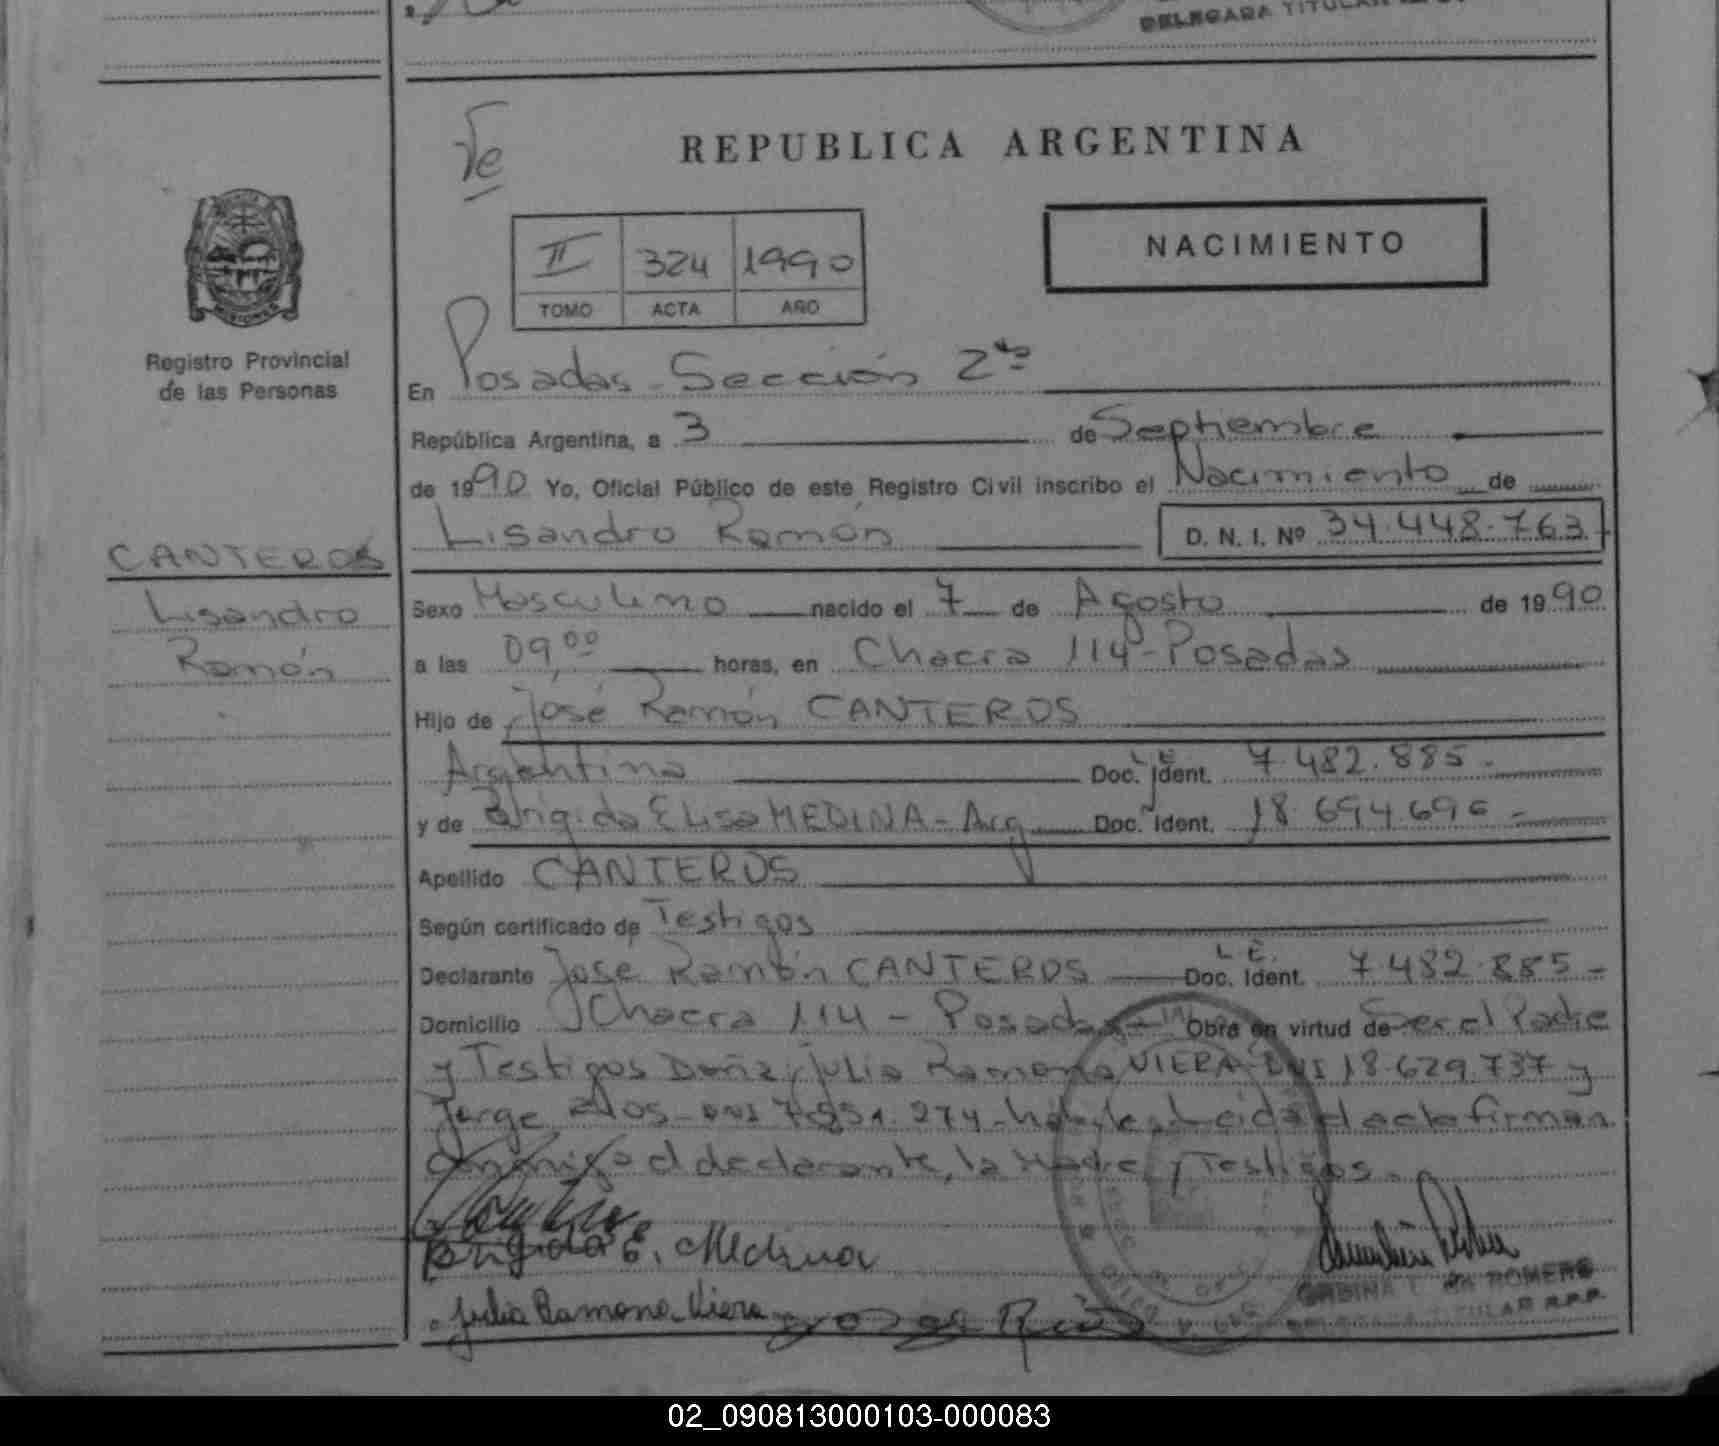 DELEGADA TITULAR
Ve
REPUBLICA ARGENTINA
II 324 1990
TOMO ACTA AÑO
NACIMIENTO
MISIONES
Registro Provincial
de las Personas
En Posadas - Sección 2da
República Argentina, a 3 de Septiembre
de 1990 Yo, Oficial Público de este Registro Civil inscribo el Nacimiento de
Lisandro Ramón D. N. I. Nº 34.448.763
CANTEROS
Lisandro
Ramón
Sexo Masculino nacido el 7 de Agosto de 1990
a las 09,00 horas, en Chacra 114 - Posadas
Hijo de José Ramón CANTEROS
Argentino L.E. Doc. Ident. 7.482.885.-
y de Brígida Elisa MEDINA - Arg Doc. Ident. 18.694.696 -
Apellido CANTEROS
Según certificado de Testigos
Declarante José Ramón CANTEROS L.E. Doc. Ident. 7.482.885 -
Domicilio Chacra 114 - Posadas - Obra en virtud de Ser el Padre
y Testigos Doña Julia Ramona VIERA - DNI 18.629.737 y
Jorge DNI 274 - Leida el acta firman
conmigo el declarante, la Madre y Testigos.-
Brígida E. Medina
Julia Ramona Viera
ROMERO
TITULAR R.P.P.
02_090813000103-000083